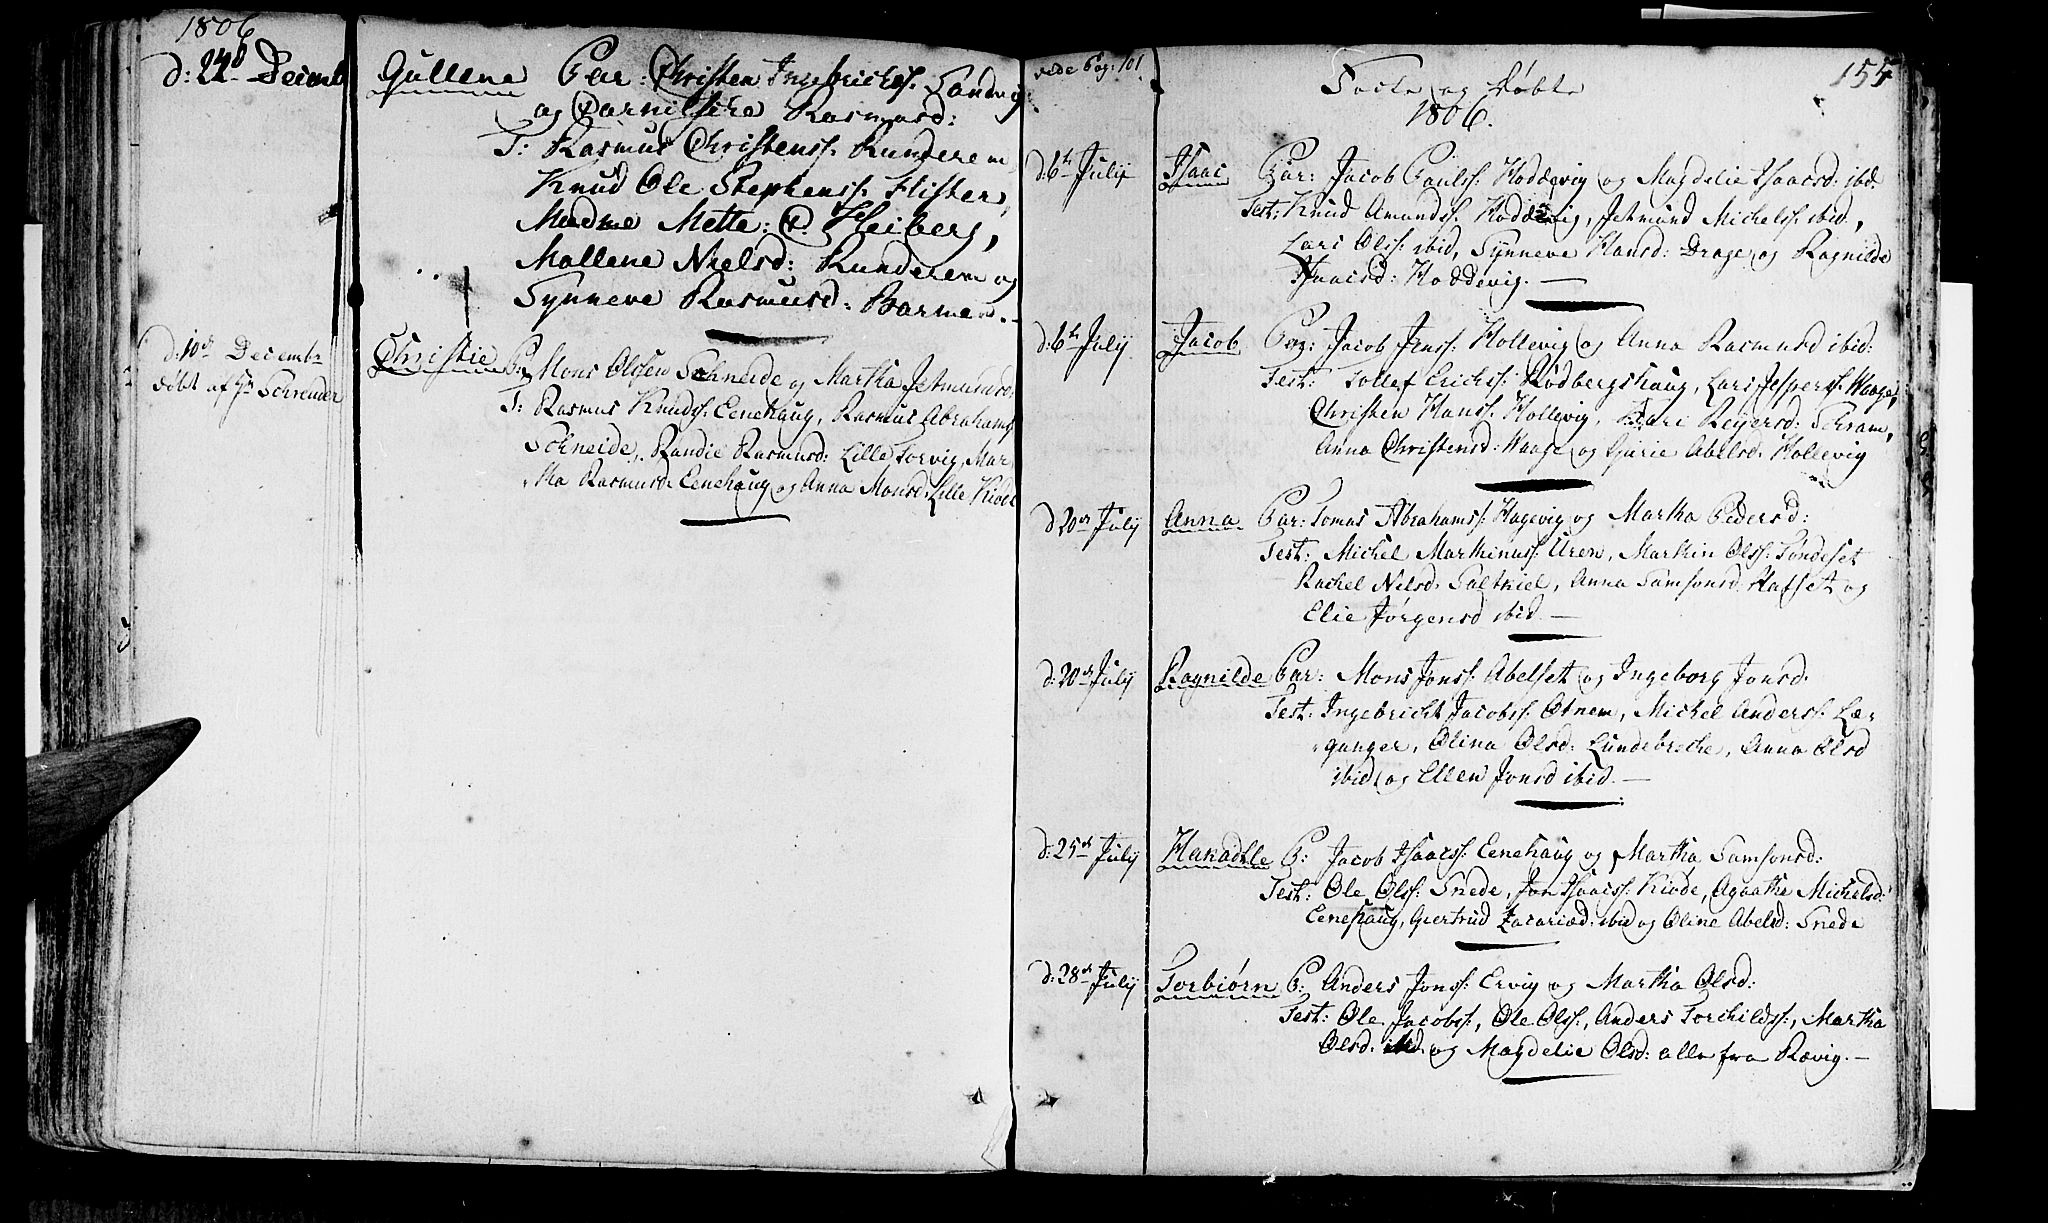 1806
d: 24d Decemb Gullene Par: Christen Ingebrichs: Sandvig
og Pernilsche Rasmusd:
T: Rasmus Christenss: Runderem,
Knud Ole Stephenss: Flister,
Madme Mette: C: Heiberg,
Mallene Nielsd: Runderem og
Synneve Rasmusd: Barmen. -
d: 10de Decembr Christie P: Mons Olssen Schneide og Martha Jetmundsd:
døbt af Hr Schreuder T: Rasmus Knudss: Eenehaug, Rasmus Abrahams:
Schneide, Randie Rasmusd: Lille Torvig, Mar-
tha Rasmusd: Eenehaug og Anna Monsd: Lille Kiøde
vide Pag: 101
155
Fødte og Døbte
1806.
d: 6te July Isaac Par: Jacob Paulss: Hoddevig og Magdelie Isaacsd: ibd.
Test: Knud Amundss: Hoddevig, Jetmund Michelss: ibid,
Lars Olss: ibid, Synneve Hansd: Drage og Ragnilde
Isaacsd: Hoddevig. -
d: 6te July Jacob Par: Jacob Jenss: Hollevig og Anna Rasmusd ibid:
Test: Tollef Erichss: Rødbergshaug, Lars Jesperss: Waage,
Christen Hanss: Hollevig, Kari Reijersd: Schram,
Anna Christensd: Waage og Giurie Abelsd: Hollevig
d: 20de July Anna Par: Tomas Abrahamss: Hagevig og Martha Pedersd:
Test: Michel Marthinuss: Uren, Marthin Olss: Tondeset
Rachel Nielsd: Saltkiel, Anna Samsonsd: Hafset og
Elie Jørgensd ibid. -
d: 20de July Ragnilde Par: Mons Jonss: Abelset og Ingeborg Jonsd.
Test: Ingebricht Jacobss: Otnem, Michel Anderss: Læ-
ganger, Olina Olsd: Lundebreche, Anna Olsd
ibid og Ellen Jonsd ibid. -
d: 25de July Haradlle P: Jacob Isaacss: Eenehaug og Martha Samsonsd:
Test: Ole Olss: Snede, Jon Isaacss: Kiøde, Agaatha Michelsd:
Eenehaug, Giertrud Zacariæd: ibid og Oline Abelsd: Snede
d: 28de July Torbiørn P: Anders Jonss: Ervig og Martha Olsd:
Test: Ole Jacobss:, Ole Olss:, Anders Torchildss:, Martha
Olsd: og Magdelie Olsd: alle fra Rævig. -